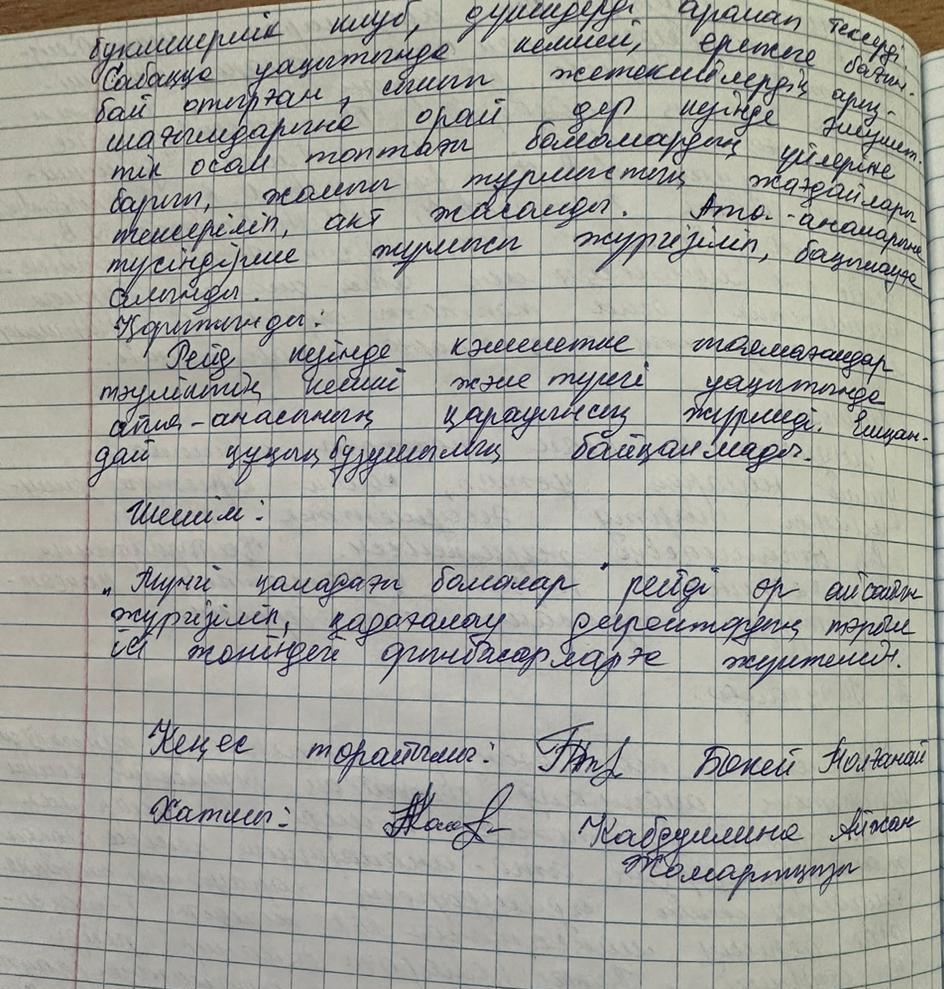 букмекерлік клуб, дүкендерді аралап тексерді.
Сабаққа уақытында келмей, ережеге бағын-
бай отырған, сынып жетекшілердің арыз-
шағымдарына орай дер кезінде әлеумет-
тік осал топтағы балалардың үйлеріне
барып, жалпы тұрмыстық жағдайлары
тексеріліп, акт жасалды. Ата-аналарына
түсіндірме жұмысы жүргізіліп, бақылауға
алынды.
Қорытынды:
Рейд кезінде кәмелетке толмағандар
тәуліктің кешкі және түнгі уақытында
ата-анасының қарауынсыз жүрмеді. Ешқан-
дай құқық бұзушылық байқалмады.
Шешім:
„Түнгі қаладағы балалар" рейді әр ай сайын
жүргізіліп, қадағалау директордың тәрбие
ісі жөніндегі орынбасарларға жүктелсін.
Кеңес төрайымы: Бөкей Толғанай
Хатшы: Кабдуллина Айжан
Жомартқызы